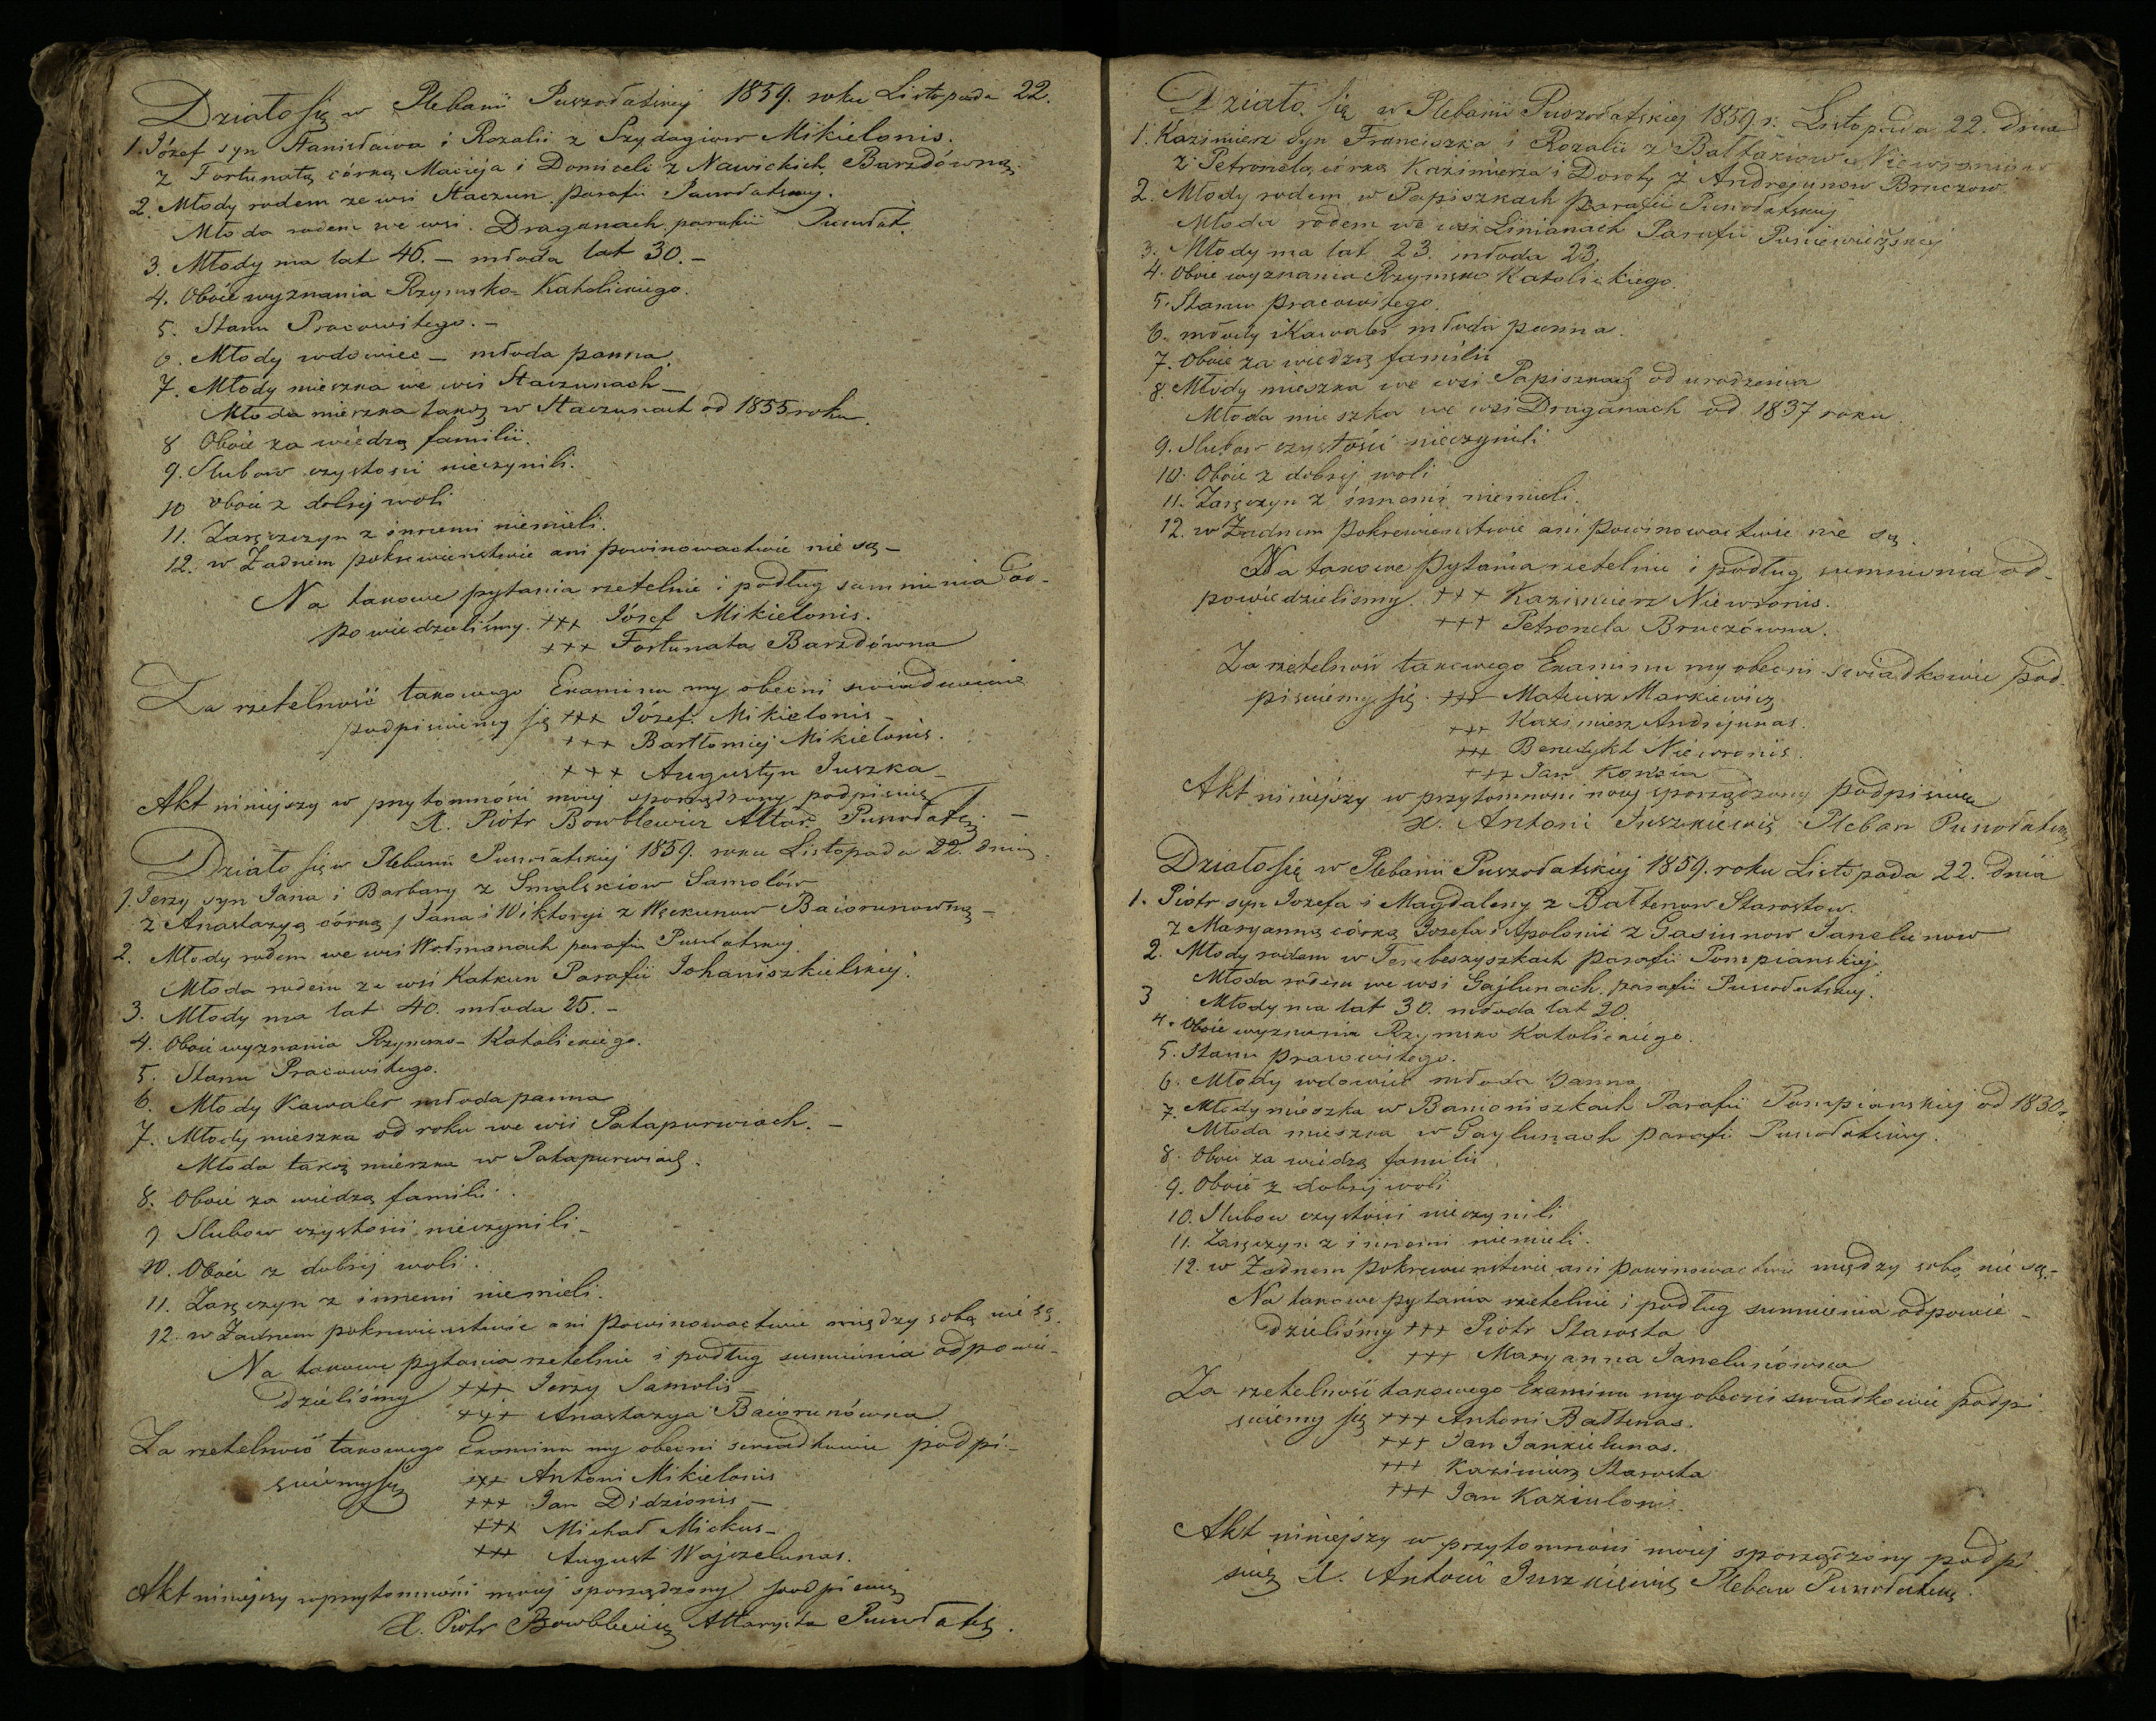 Działo się w Plebanii Puszołatskiej 1859. roku Listopada 22.
1. Józef syn Stanisława i Rozalii z Szydagiow Mikielonis.
z Fortunatą córką Macieja i Domiceli z Nawickich Barzdówną.
2. Młody rodem ze wsi Staczun parafii Puszołatskiey.
Młoda rodem we wsi Draganach parafii Puszołat.
3. Młody ma lat 46. – młoda lat 30. –
4. Oboie wyznania Rzymsko-Katolickiego.
5. Stanu Pracowitego. –
6. Młody wdowiec – młoda panna
7. Młody mieszka we wsi Staczunach –
Młoda mieszka takoż w Staczunach od 1855 roku.
8 Oboie za wiedzą familii.
9. Slubow czystosci nieczynili.
10 oboie z dobrej woli
11. Zaręczczyn z innemi niemieli.
12. w Żadnem pokrewienstwie ani powinowactwie nie są –
Na takowe pytania rzetelnie i podług sumnienia od-
powiedzieliśmy. +++ Józef Mikielonis.
+++ Fortunata Barzdówna
Za rzetelność takowego Examinu my obecni swiadkowie
podpisuiemy się +++ Józef Mikielonis –
+++ Bartłomiej Mikielonis.
+++ Augustyn Juszka –
Akt niniejszy w przytomności mojej sporządzony podpisuię
X. Piotr Bowblewicz Altar. Puszołatsķi –
Działo się w Plebanii Puszołatskiej 1859. roku Listopada 22. dnia
1. Jerzy syn Jana i Barbary z Smalskiow Samolów
z Anastazyą córką Jana i Wiktoryi z Węckunow Baiorunowną –
2. Młody rodem we wsi Wołmanach parafii Puszołatskiej.
Młoda rodem ze wsi Katkun Parafii Johaniszkielskiej.
3. Młody ma lat 40. młoda 25. –
4. Oboie wyznania Rzymsko-Katolickiego.
5. Stanu Pracowitego.
6. Młody Kawaler młoda panna
7. Młody mieszka od roku we wsi Patapurwiach. –
Młoda takoż mieszka w Patapurwiach.
8. Oboie za wiedzą familii.
9 Slubow czystosci nieczynili –
10. Oboie z dobrej woli.
11. Zaręczyn z innemi niemieli.
12. w Żadnem pokrewienstwie ani powinowactwie między sobą nie są.
Na takowe pytania rzetelnie i podług sumnienia odpowie-
dzieliśmy +++ Jerzy Samolis –
+++ Anastazya Baiorunówna
Za rzetelność takowego Examinu my obecni swiadkowie podpi-
suiemy się +++ Antoni Mikielonis
+++ Jan Didzionis –
+++ Michał Mickus –
+++ August Wojczelunas.
Akt niniejszy w przytomności mojej sporządzony podpisuię
X. Piotr Bowblewicz Altarysta Puszołatsķi.
Działo się w Plebanii Puszołatskiej 1859 r. Listopada 22. dnia
1. Kazimierz syn Franciszka i Rozalii z Bałtakiow Niewroniow
z Petronelą córką Kazimierza i Doroty z Andrejunow Bruczow.
2. Młody rodem w Papiszkach Parafii Puszołatskiej
Młoda rodem we wsi Linianach Parafii Poniewieżskiej
3. Młody ma lat 23. młoda 23.
4. Oboie wyznania Rzymsko Katolickiego.
5. Stanu pracowitego.
6. młody Kawaler młoda panna.
7. Oboie za wiedzą familii
8. Młody mieszka we wsi Papiszkach od urodzenia
Młoda mieszka we wsi Draganach od 1837 roku.
9. Slubow czystości nieczynili
10. Oboie z dobrej woli
11. Zaręczyn z innemi niemieli.
12. w Żadnem pokrewienstwie ani powinowactwie nie są.
Na takowe pytania rzetelnie i podług sumnienia od-
powiedzielismy. +++ Kazimierz Niewronis.
+++ Petronela Bruczówna.
Za rzetelność takowego Examinu my obecni swiadkowie pod-
pisuiemy się +++ Mateusz Markiewicz
+++ Kazimierz Andrejunas.
+++ Benedykt Niewronis.
+++ Jan
Akt niniejszy w przytomnosci mojej sporządzony podpisuię
X. Antoni Juszkiewicz Pleban Puszołatski
Działo się w Plebanii Puszołatskiej 1859. roku Listopada 22. dnia
1. Piotr syn Jozefa i Magdaleny z Bałtenow Starostow.
z Maryanną córką Jozefa i Apolonii z Gasiunow Janelunow
2. Młody rodem w Terebeszyszkach parafii Pompianskiej.
Młoda rodem we wsi Gajlunach, parafii Puszołatskiej.
3 Młody ma lat 30. młoda lat 20.
4. Oboie wyznania Rzymsko Katolickiego.
5. Stanu pracowitego.
6. Młody wdowiec młoda panna
7. Młody mieszka w Banioniszkach Parafii Pompianskiej od 1830.
Młoda mieszka w Gaylunach parafii Puszołatskiej.
8. Oboie za wiedzą familii
9. Oboie z dobrej woli
10. Slubow czystości nieczynili
11. Zaręczyn z innemi niemieli.
12. w Żadnem pokrewienstwie ani powinowactwie między sobą nie są. –
Na takowe pytania rzetelnie i podług sumnienia odpowie-
dzieliśmy +++ Piotr Starosta
+++ Maryanna Janelunówna
Za rzetelność takowego Examinu my obecni swiadkowie podpi
suiemy się +++ Antoni Bałtenas.
+++ Jan Jankielunas.
+++ Kazimierz Starosta
+++ Jan Kaziulonis.
Akt niniejszy w przytomności mojej sporządzony podpi
suię X. Antoni Juszkiewicz Pleban Puszołatski.